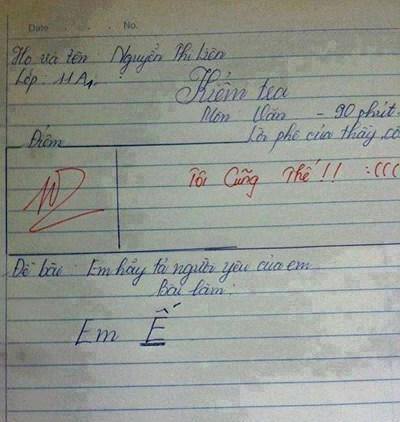 Date No.
Họ và tên: Nguyễn Thị Liên
Lớp: 11A1
Kiểm tra
Môn Văn - 90 phút
Điểm Lời phê của thầy, cô
10 Tôi Cũng Thế!! :(((
Đề bài: Em hãy tả người yêu của em
Bài làm:
Em Ế